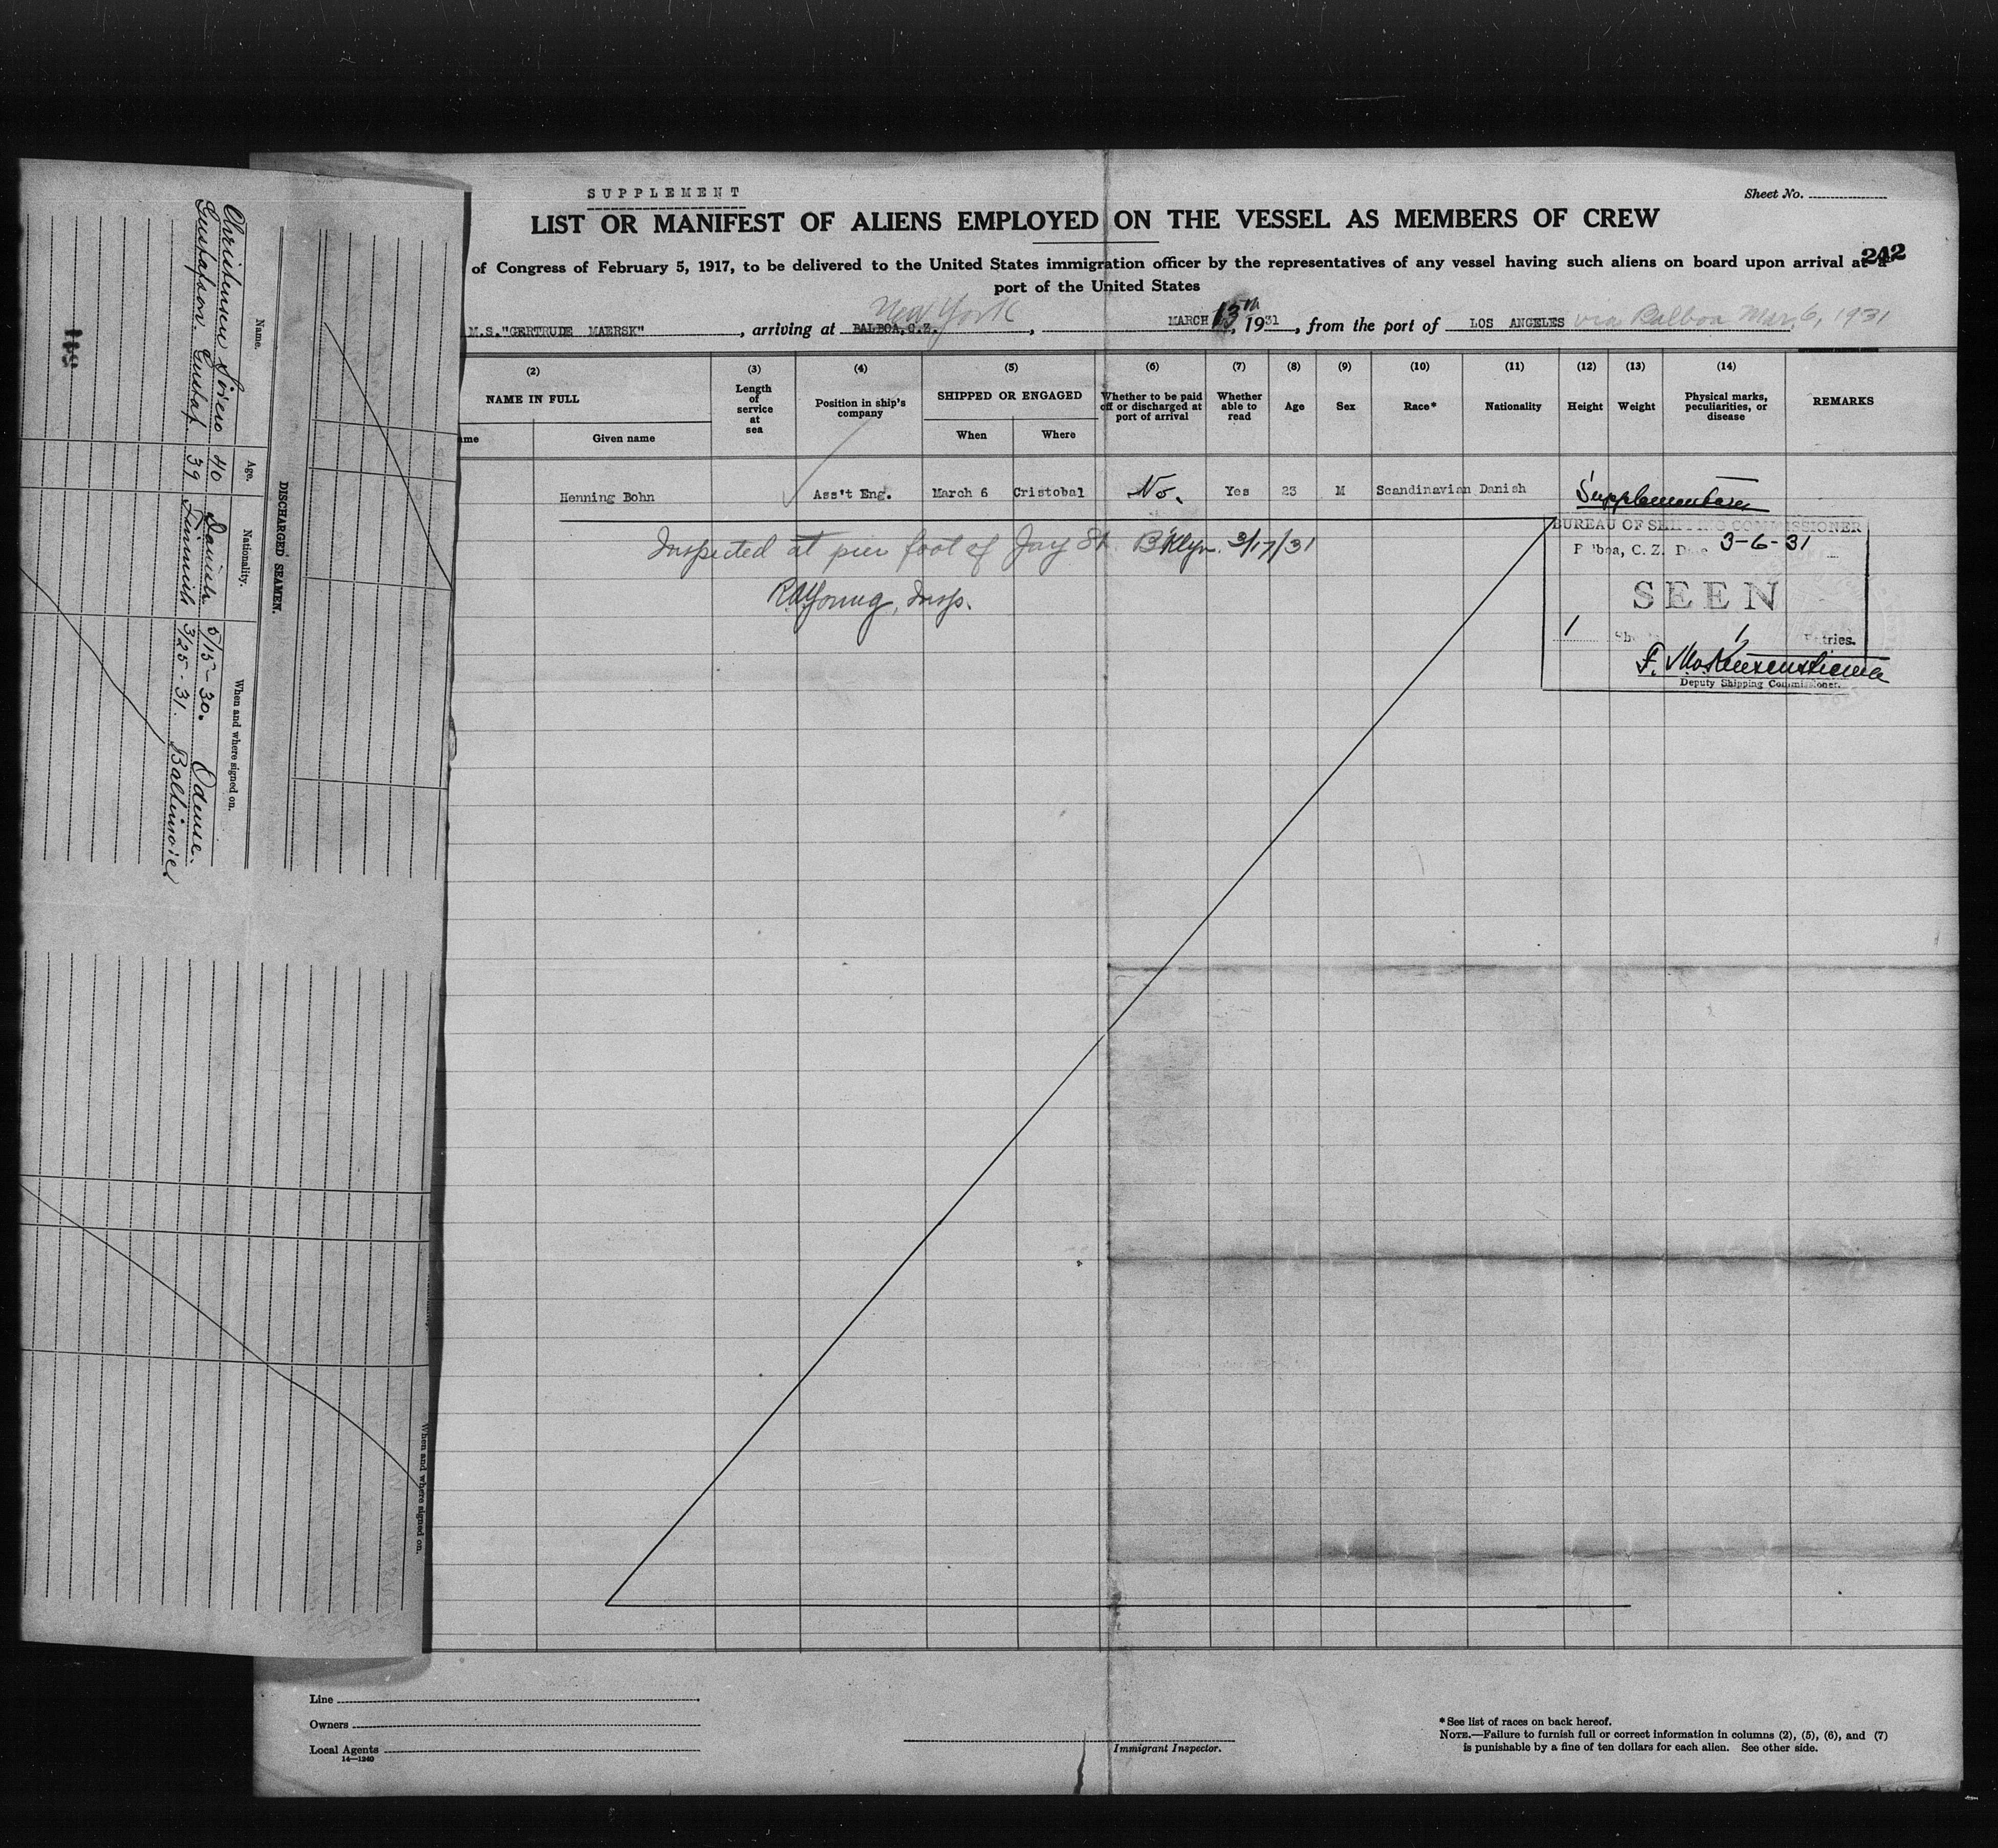 SUPPLEMENT
Sheet No.
LIST OR MANIFEST OF ALIENS EMPLOYED ON THE VESSEL AS MEMBERS OF CREW
242
of Congress of February 5, 1917, to be delivered to the United States immigration officer by the representatives of any vessel having such aliens on board upon arrival at a
port of the United States
New York
M.S."GERTRUDE MAERSK", arriving at BALBOA,C.Z., MARCH 13th, 1931, from the port of LOS ANGELES via Balboa Mar. 6, 1931
(2) (3) (4) (5) (6) (7) (8) (9) (10) (11) (12) (13) (14)
NAME IN FULL
Given name
Length of service at sea
Position in ship's company
SHIPPED OR ENGAGED
When Where
Whether to be paid off or discharged at port of arrival
Whether able to read
Age
Sex
Race*
Nationality
Height
Weight
Physical marks, peculiarities, or disease
REMARKS
Henning Bohn Ass't Eng. March 6 Cristobal No. Yes 23 M Scandinavian Danish
Inspected at pier foot of Jay St. B'klyn. 3/17/31
R.A. Young, Insp.
BUREAU OF SHIPPING COMMISSIONER
Balboa, C. Z. 3-6-31
SEEN
1 1
Deputy Shipping Commissioner.
DISCHARGED SEAMEN.
Name. Age. Nationality. When and where signed on.
Christensen Sören 40 Danish 5/15-30. Odense.
Gustafson. Gustaf 39 Finnish 3/25-31. Baltimore
When and where signed on.
Line
Owners
Local Agents
14—1240
Immigrant Inspector.
*See list of races on back hereof.
NOTE.—Failure to furnish full or correct information in columns (2), (5), (6), and (7)
is punishable by a fine of ten dollars for each alien. See other side.